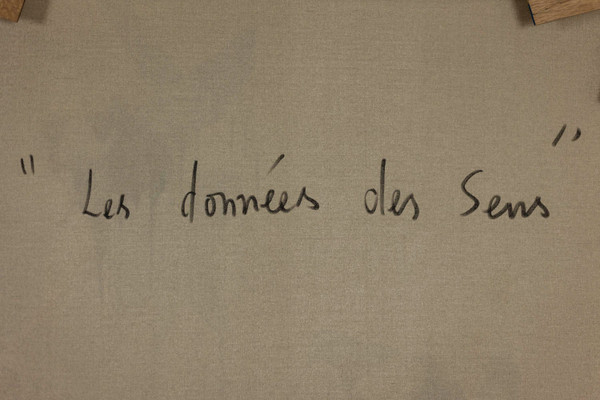 " Les données des Sens "